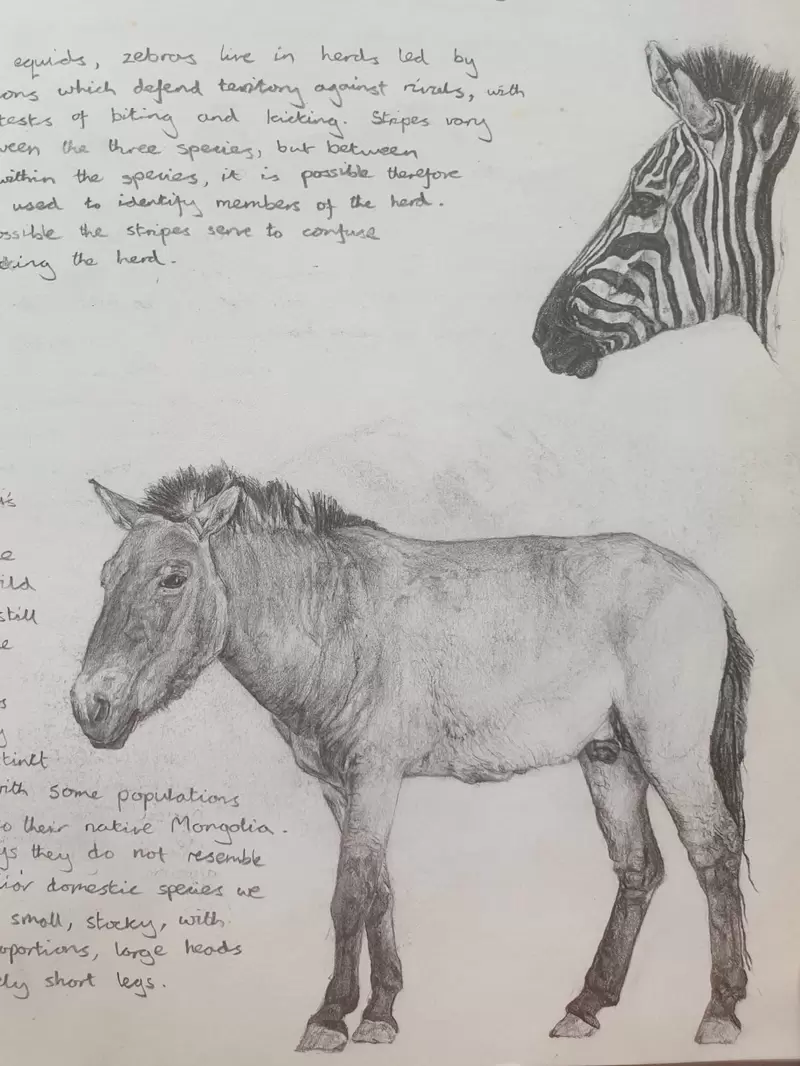 equids, zebras live in herds led by
ons which defend territory against rivals, with
tests of biting and kicking. Stripes vary
ween the three species, but between
within the species, it is possible therefore
used to identify members of the herd.
ossible the stripes serve to confuse
king the herd.
's
e
ild
still
e
s
y
tinct
with some populations
o their native Mongolia.
ys they do not resemble
ior domestic species we
small, stocky, with
oportions, large heads
ely short legs.